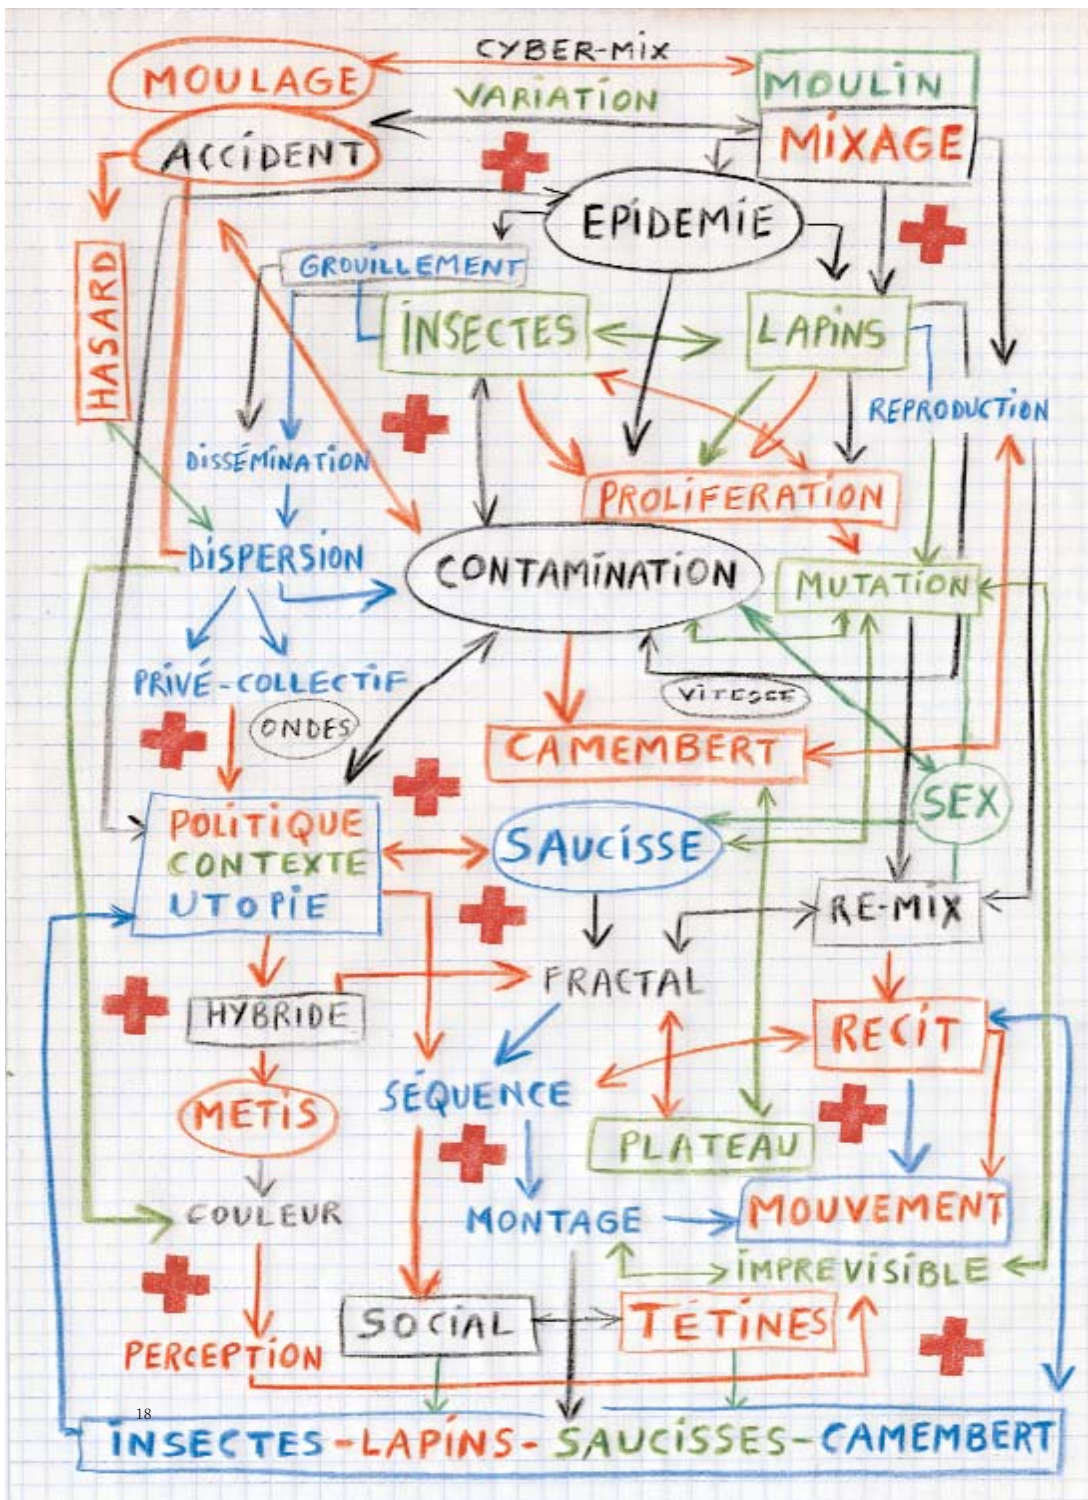 CYBER-MIX
MOULAGE
MOULIN
VARIATION
MIXAGE
ACCIDENT
EPIDEMIE
GROUILLEMENT
HASARD
INSECTES
LAPINS
REPRODUCTION
DISSÉMINATION
PROLIFERATION
DISPERSION
CONTAMINATION
MUTATION
PRIVÉ-COLLECTIF
VITESSE
ONDES
CAMEMBERT
SEX
POLITIQUE
CONTEXTE
UTOPIE
SAUCISSE
RE-MIX
FRACTAL
HYBRIDE
RECIT
SÉQUENCE
METIS
PLATEAU
COULEUR
MONTAGE
MOUVEMENT
IMPREVISIBLE
SOCIAL
TÉTINES
PERCEPTION
18
INSECTES-LAPINS-SAUCISSES-CAMEMBERT